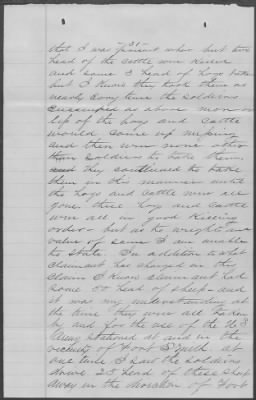 -31-
that I was present when but two
head of the cattle were killed
and some 3 head of hogs
but I know they took them as
nearly every time the soldiers
as above more or
less of the hogs and cattle
would come up missing
and there were none other
than soldiers to take them,
and they continued to take
them in this manner until
the hogs and cattle were all
gone, these hogs and cattle
were all in good killing
order - but as to weight and
value of same I am unable
to state. In addition to what
claimant has charged in this
claim I know claimant had
some 50 head of sheep - and
it was my understanding at
the time they were all taken
by and for the use of the U S
Army stationed at and in the
vicinity of Fort Smith at
one time I saw the soldiers
drive 25 head of these sheep
away in the direction of Fort